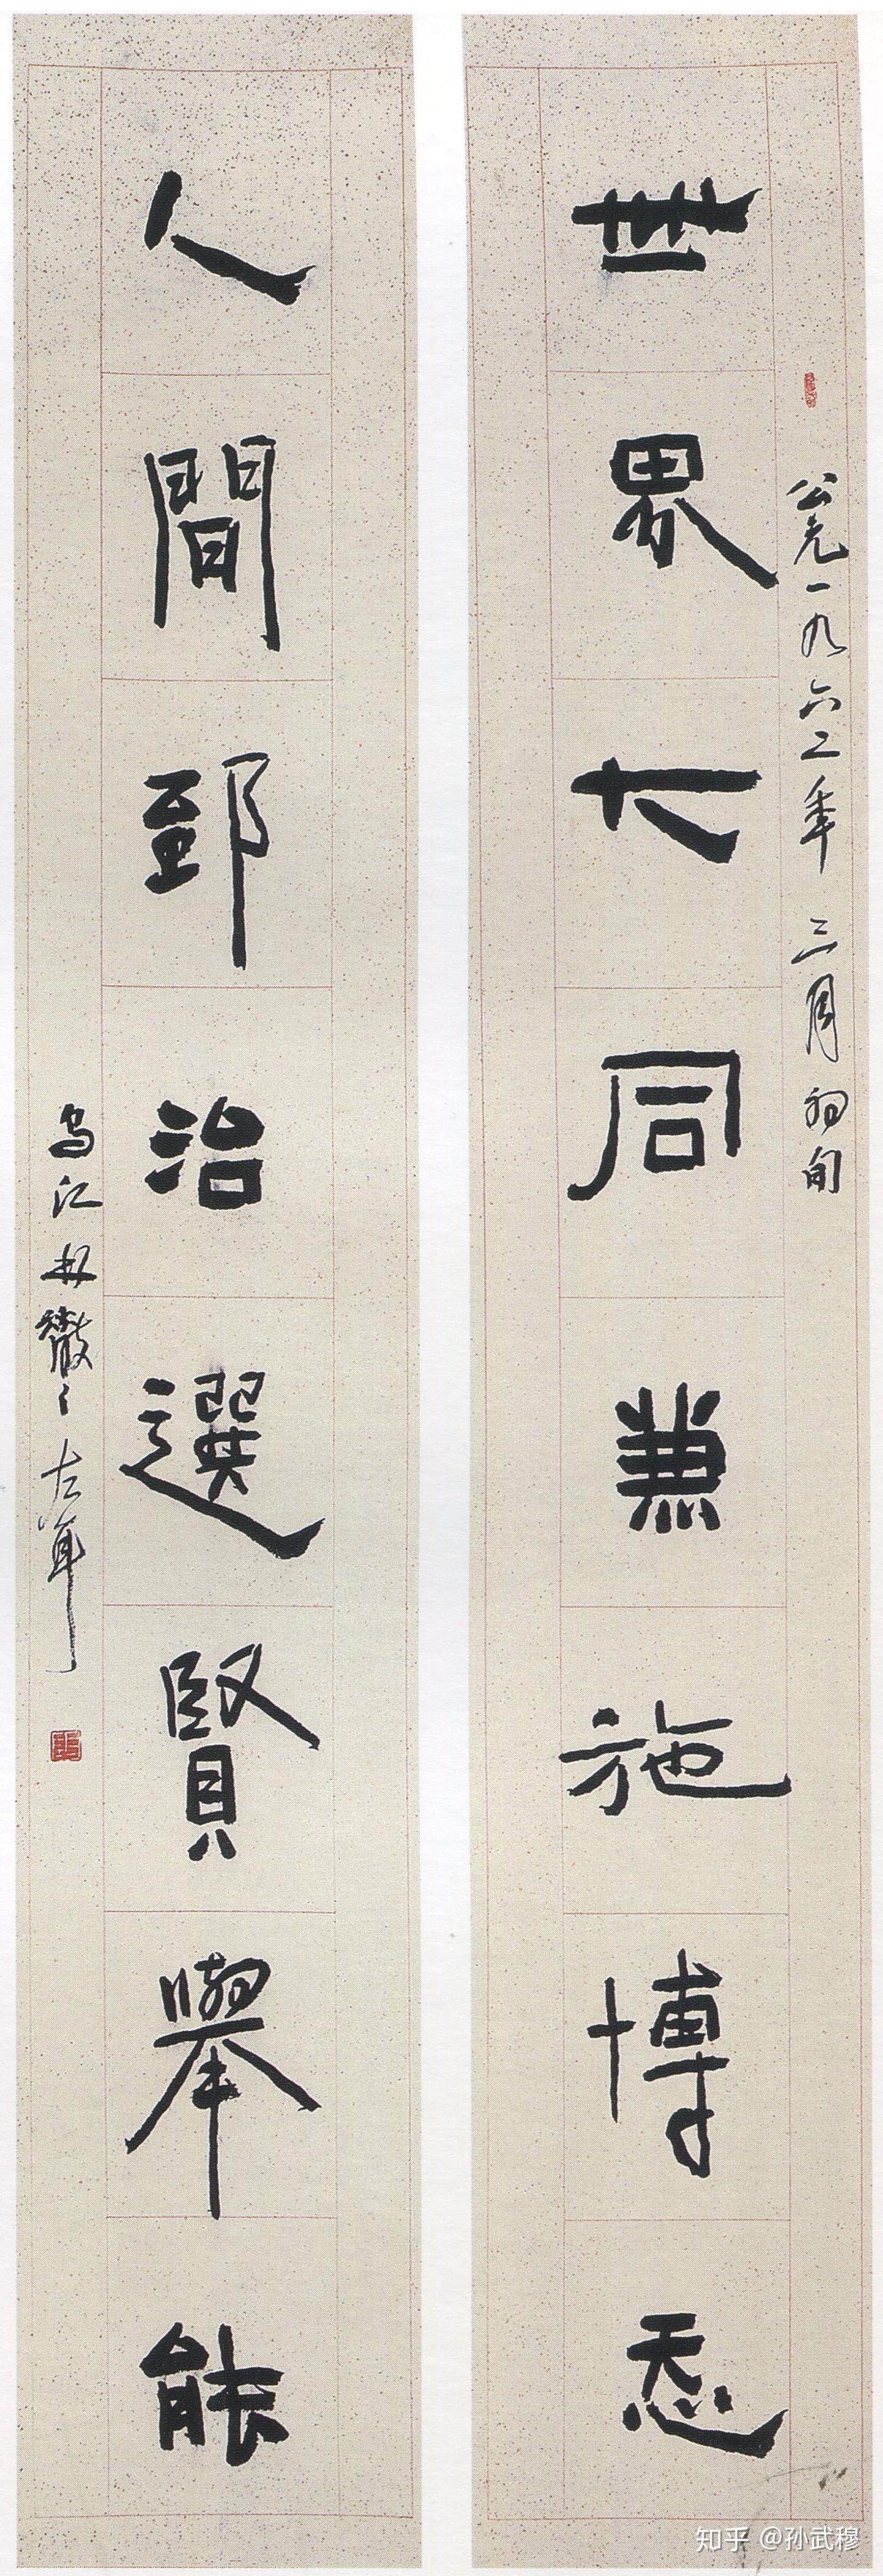 公元一九六二年三月初旬
世界大同兼施博㤅
人間郅治選賢舉能
烏江林散之左耳
知乎 @孙武穆